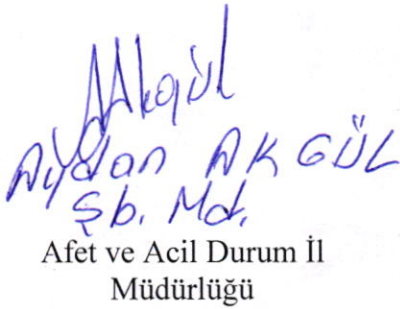 AAkgül
Aydan AKGÜL
Şb. Md.
Afet ve Acil Durum İl
Müdürlüğü